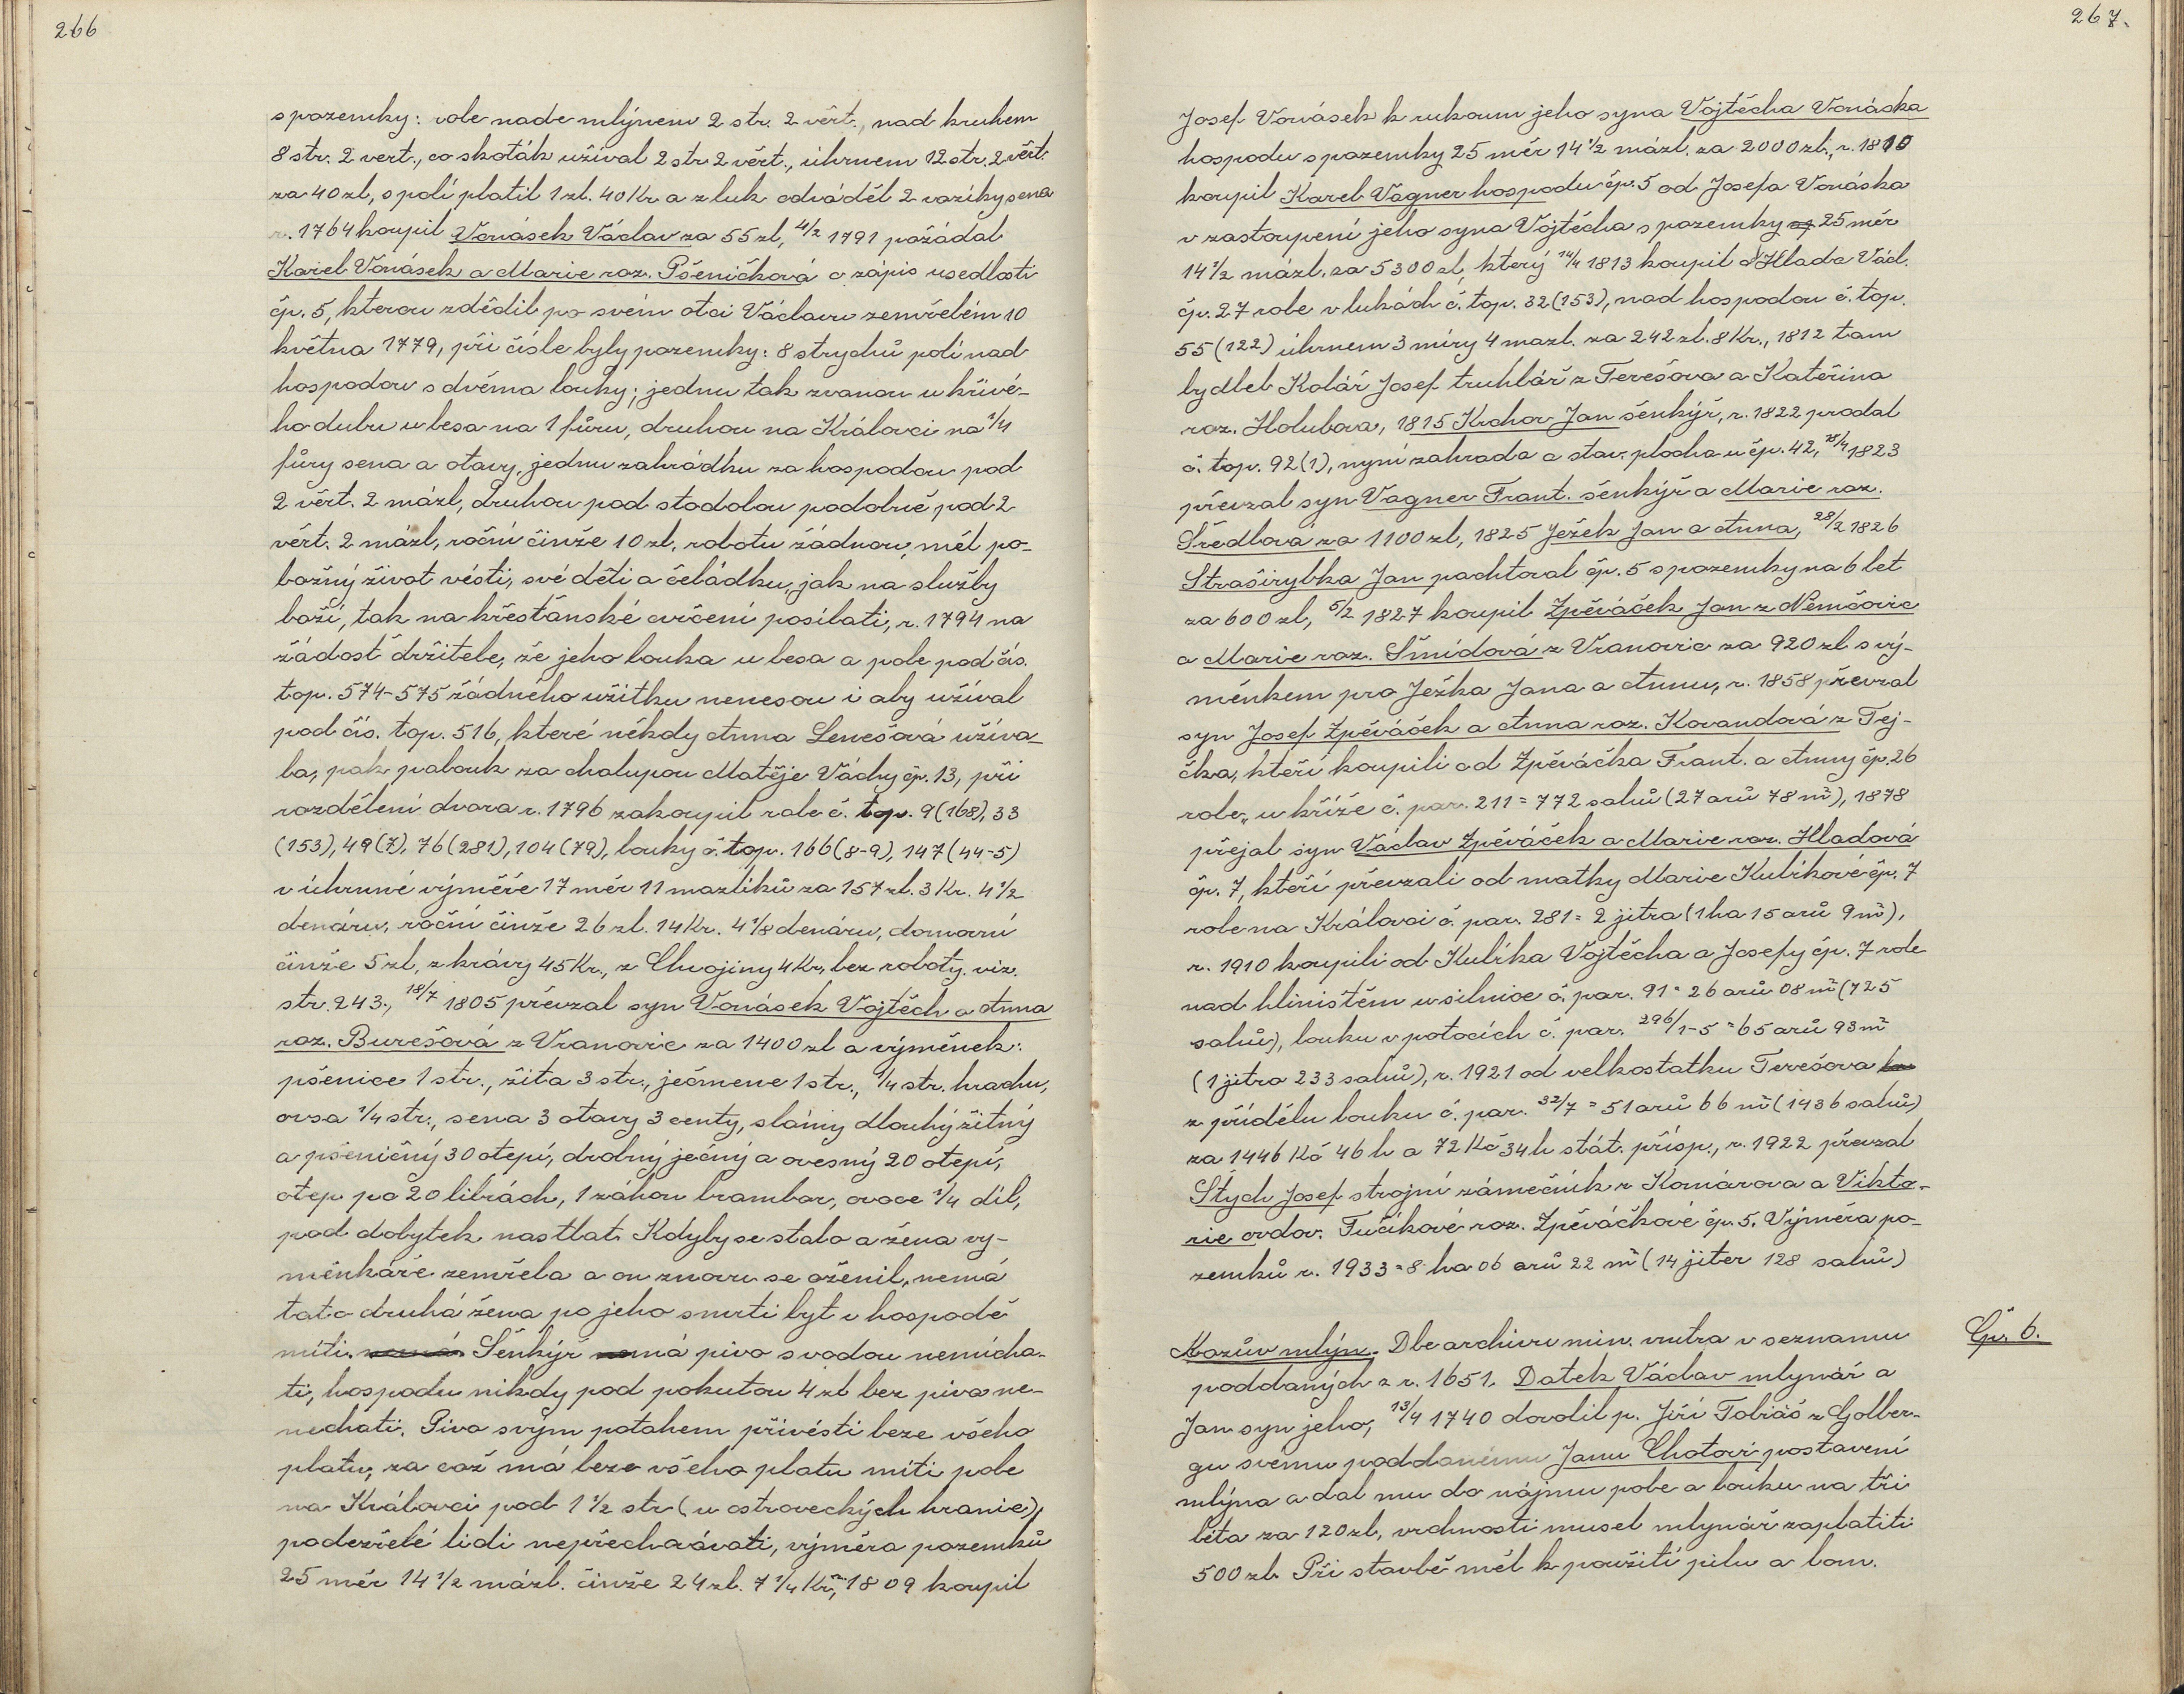 266
s pozemky: role nade mlýnem 2 str. 2 věrt., nad kruhem
8 str. 2 vert., co skoták užíval 2 str 2 věrt., úhrnem 12 str. 2 věrt.
za 40 zl, s polí platil 1 zl. 40 Kr a z luk odváděl 2 vozíky sena
r. 1764 koupil Vonásek Václav za 55 zl, 4/2 1791 požádal
Karel Vonásek a Marie roz. Pšeničková o zápis usedlosti
čp. 5, kterou zdědil po svém otci Václavu zemřelém 10
května 1779, při čísle byly pozemky: 8 strychů polí nad
hospodou s dvěma louky; jednu tak zvanou u křivé-
ho dubu u lesa na 1 fůru, druhou na Královci na 1/4
fůry sena a otavy, jednu zahrádku za hospodou pod
2 věrt. 2 mázl, druhou pod stodolou podobně pod 2
věrt. 2 mázl, roční činže 10 zl. robotu žádnou, měl po-
božný život vésti, své děti a čeládku, jak na služby
boží, tak na křesťanské cvičení posílati, r. 1794 na
žádost držitele, že jeho louka u lesa a pole pod čís.
top. 574-575 žádného užitku nenesou i aby užíval
pod čís. top. 516, které někdy Anna Lenešová užíva-
la, pak palouk za chalupou Matěje Váchy čp. 13, při
rozdělení dvora r. 1796 zakoupil role č. top. 9 (168), 33
(153), 49 (7), 76 (281), 104 (79), louky č. top. 166 (8-9), 147 (44-5)
v úhrnné výměře 17 měr 11 mazlíků za 157 zl. 3 Kr. 4 1/2
denáru, roční činže 26 zl. 14 Kr. 4 1/8 denáru, domovní
činže 5 zl, z krávy 45 Kr., z Chvojiny 4 Kr, bez roboty. viz.
str. 243., 18/7 1805 převzal syn Vonásek Vojtěch a Anna
roz. Burešová z Vranovic za 1400 zl a výměnek:
pšenice 1 str., žita 3 str., ječmene 1 str., 1/4 str. hrachu,
ovsa 1/4 str., sena 3 otavy 3 centy, slámy dlouhý žitný
a pšeničný 30 otepí, drobný ječný a ovesný 20 otepí,
otep po 20 librách, 1 záhon brambor, ovoce 1/4 díl,
pod dobytek nastlat. Kdyby se stalo a žena vý-
měnkáře zemřela a on znovu se oženil, nemá
tato druhá žena po jeho smrti byt v hospodě
míti. Šenkýř má pivo s vodou nemícha-
ti, hospodu nikdy pod pokutou 4 zl bez piva ne-
nechati. Pivo svým potahem přivésti beze všeho
platu, za což má beze všeho platu míti pole
na Královci pod 1 1/2 str (u ostroveckých hranic),
podezřelé lidi nepřechovávati, výměra pozemků
25 měr 14 1/2 mázl. činže 24 zl. 7 1/4 Kr, r. 1809 koupil
267.
Josef Vonásek k rukoum jeho syna Vojtěcha Vonáska
hospodu s pozemky 25 měr 14 1/2 mázl. za 2000 zl., r. 1810
koupil Karel Vagner hospodu čp. 5 od Josefa Vonáska
v zastoupení jeho syna Vojtěcha s pozemky 25 měr
14 1/2 mázl. za 5300 zl, který 14/4 1813 koupil od Hlada Václ.
čp. 27 role v lukách č. top. 32 (153), nad hospodou č. top.
55 (122) úhrnem 3 míry 4 mazl. za 242 zl. 8 Kr., 1812 tam
bydlel Kolář Josef truhlář z Terešova a Kateřina
roz. Holubova, 1815 Krchov Jan šenkýř, r. 1822 prodal
č. top. 92 (1), nyní zahrada a stav. plocha u čp. 42, 1823
převzal syn Vagner Frant. šenkýř a Marie roz.
Šredlova za 1100 zl, 1825 Ježek Jan a Anna, 28/2 1826
Straširybka Jan pachtoval čp. 5 s pozemky na 6 let
za 600 zl, 5/2 1827 koupil Zpěváček Jan z Němčovic
a Marie roz. Šmídová z Vranovic za 920 zl s vý-
měnkem pro Ježka Jana a Annu, r. 1858 převzal
syn Josef Zpěváček a Anna roz. Kovandová z Tej-
čka, kteří koupili od Zpěváčka Frant. a Anny čp. 26
role „u kříže č. par. 211 = 772 sahů (27 arů 78 m²), 1878
přejal syn Václav Zpěváček a Marie roz. Hladová
čp. 7, kteří převzali od matky Marie Kulíkové čp. 7
role na Královci č. par. 281 = 2 jitra (1 ha 15 arů 9 m²),
r. 1910 koupili od Kulíka Vojtěcha a Josefy čp. 7 role
nad hliništěm u silnice č. par. 91 = 26 arů 08 m² (725
sahů), louku v potocích č. par. 296/1-5 = 65 arů 93 m²
(1 jitro 233 sahů), r. 1921 od velkostatku Terešova
z přídělu louku č. par. 32/7 = 51 arů 66 m² (1436 sahů)
za 1446 Kč 46 h a 72 Kč 34 h stát. přísp., r. 1922 převzal
Štych Josef strojní zámečník z Komárova a Vikto-
rie ovdov. Tučíkové roz. Zpěváčkové čp. 5. Výměra po-
zemků r. 1933 = 8 ha 06 arů 22 m² (14 jiter 128 sahů)
Čp. 6.
Kozův mlýn. Dle archivu min. vnitra v seznamu
poddaných z r. 1651. Datek Václav mlynář a
Jan syn jeho, 13/4 1740 dovolil p. Jiří Tobiáš z Golber-
gu svému poddanému Janu Chotovi postavení
mlýna a dal mu do nájmu pole a louku na tři
léta za 120 zl, vrchnosti musel mlynář zaplatiti
500 zl. Při stavbě měl k použití pilu a lom.